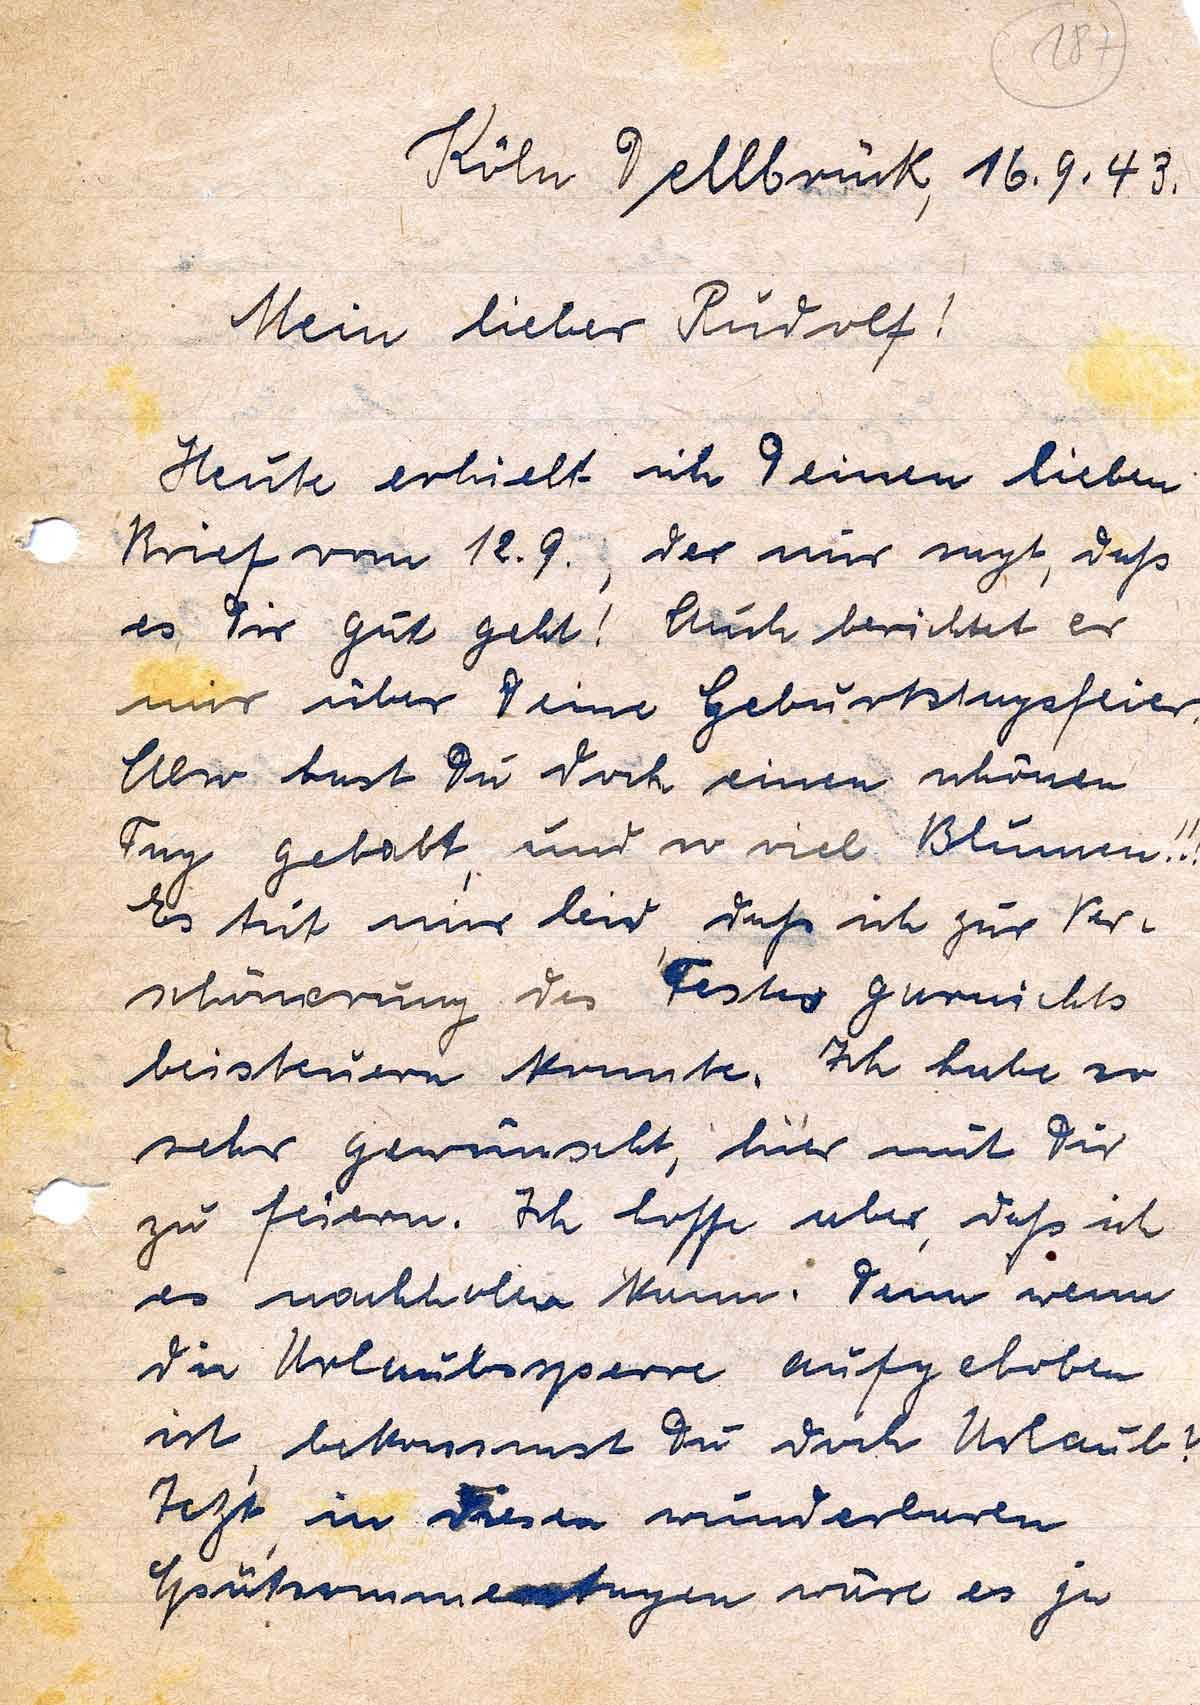 187
Köln Dellbrück, 16.9.43.
Mein lieber Rudolf!
Heute erhielt ich Deinen lieben
Brief vom 12.9., der mir sagt, daß
es Dir gut geht! Auch berichtet er
mir über Deine Geburtstagsfeier.
Also hast Du doch einen schönen
Tag gehabt, und so viel Blumen!!!
Es tut mir leid, daß ich zur Ver-
schönerung des Festes garnichts
beisteuern konnte. Ich habe so
sehr gewünscht, hier mit Dir
zu feiern. Ich hoffe aber, daß ich
es nachholen kann. Denn wenn
die Urlaubssperre aufgehoben
ist, bekommst Du doch Urlaub?
Jetzt, in diesen wunderbaren
Spätsommertagen wäre es ja